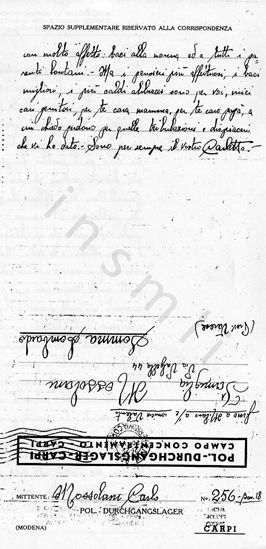 SPAZIO SUPPLEMENTARE RISERVATO ALLA CORRISPONDENZA
con molto affetto. baci alla nonna ed a tutti i pa-
renti lontani.- Ma i pensieri più affettuosi, i baci
migliori, i più caldi abbracci sono per voi, miei
cari genitori, per te cara mamma, per te caro papà, a
cui chiedo perdono per quelle tribolazioni e dispiaceri
che vi ho dato.- Sono per sempre il vostro Carletto.-
insmli
(Prov. Varese)
Somma Lombardo
Via 44
Famiglia Mossolani
POL.-DURCHGANGSLAGER-CARPI
CAMPO CONCENTRAMENTO - CARPI
MITTENTE: Mossolani Carlo No. 256-
POL. DURCHGANGSLAGER
(MODENA) CARPI